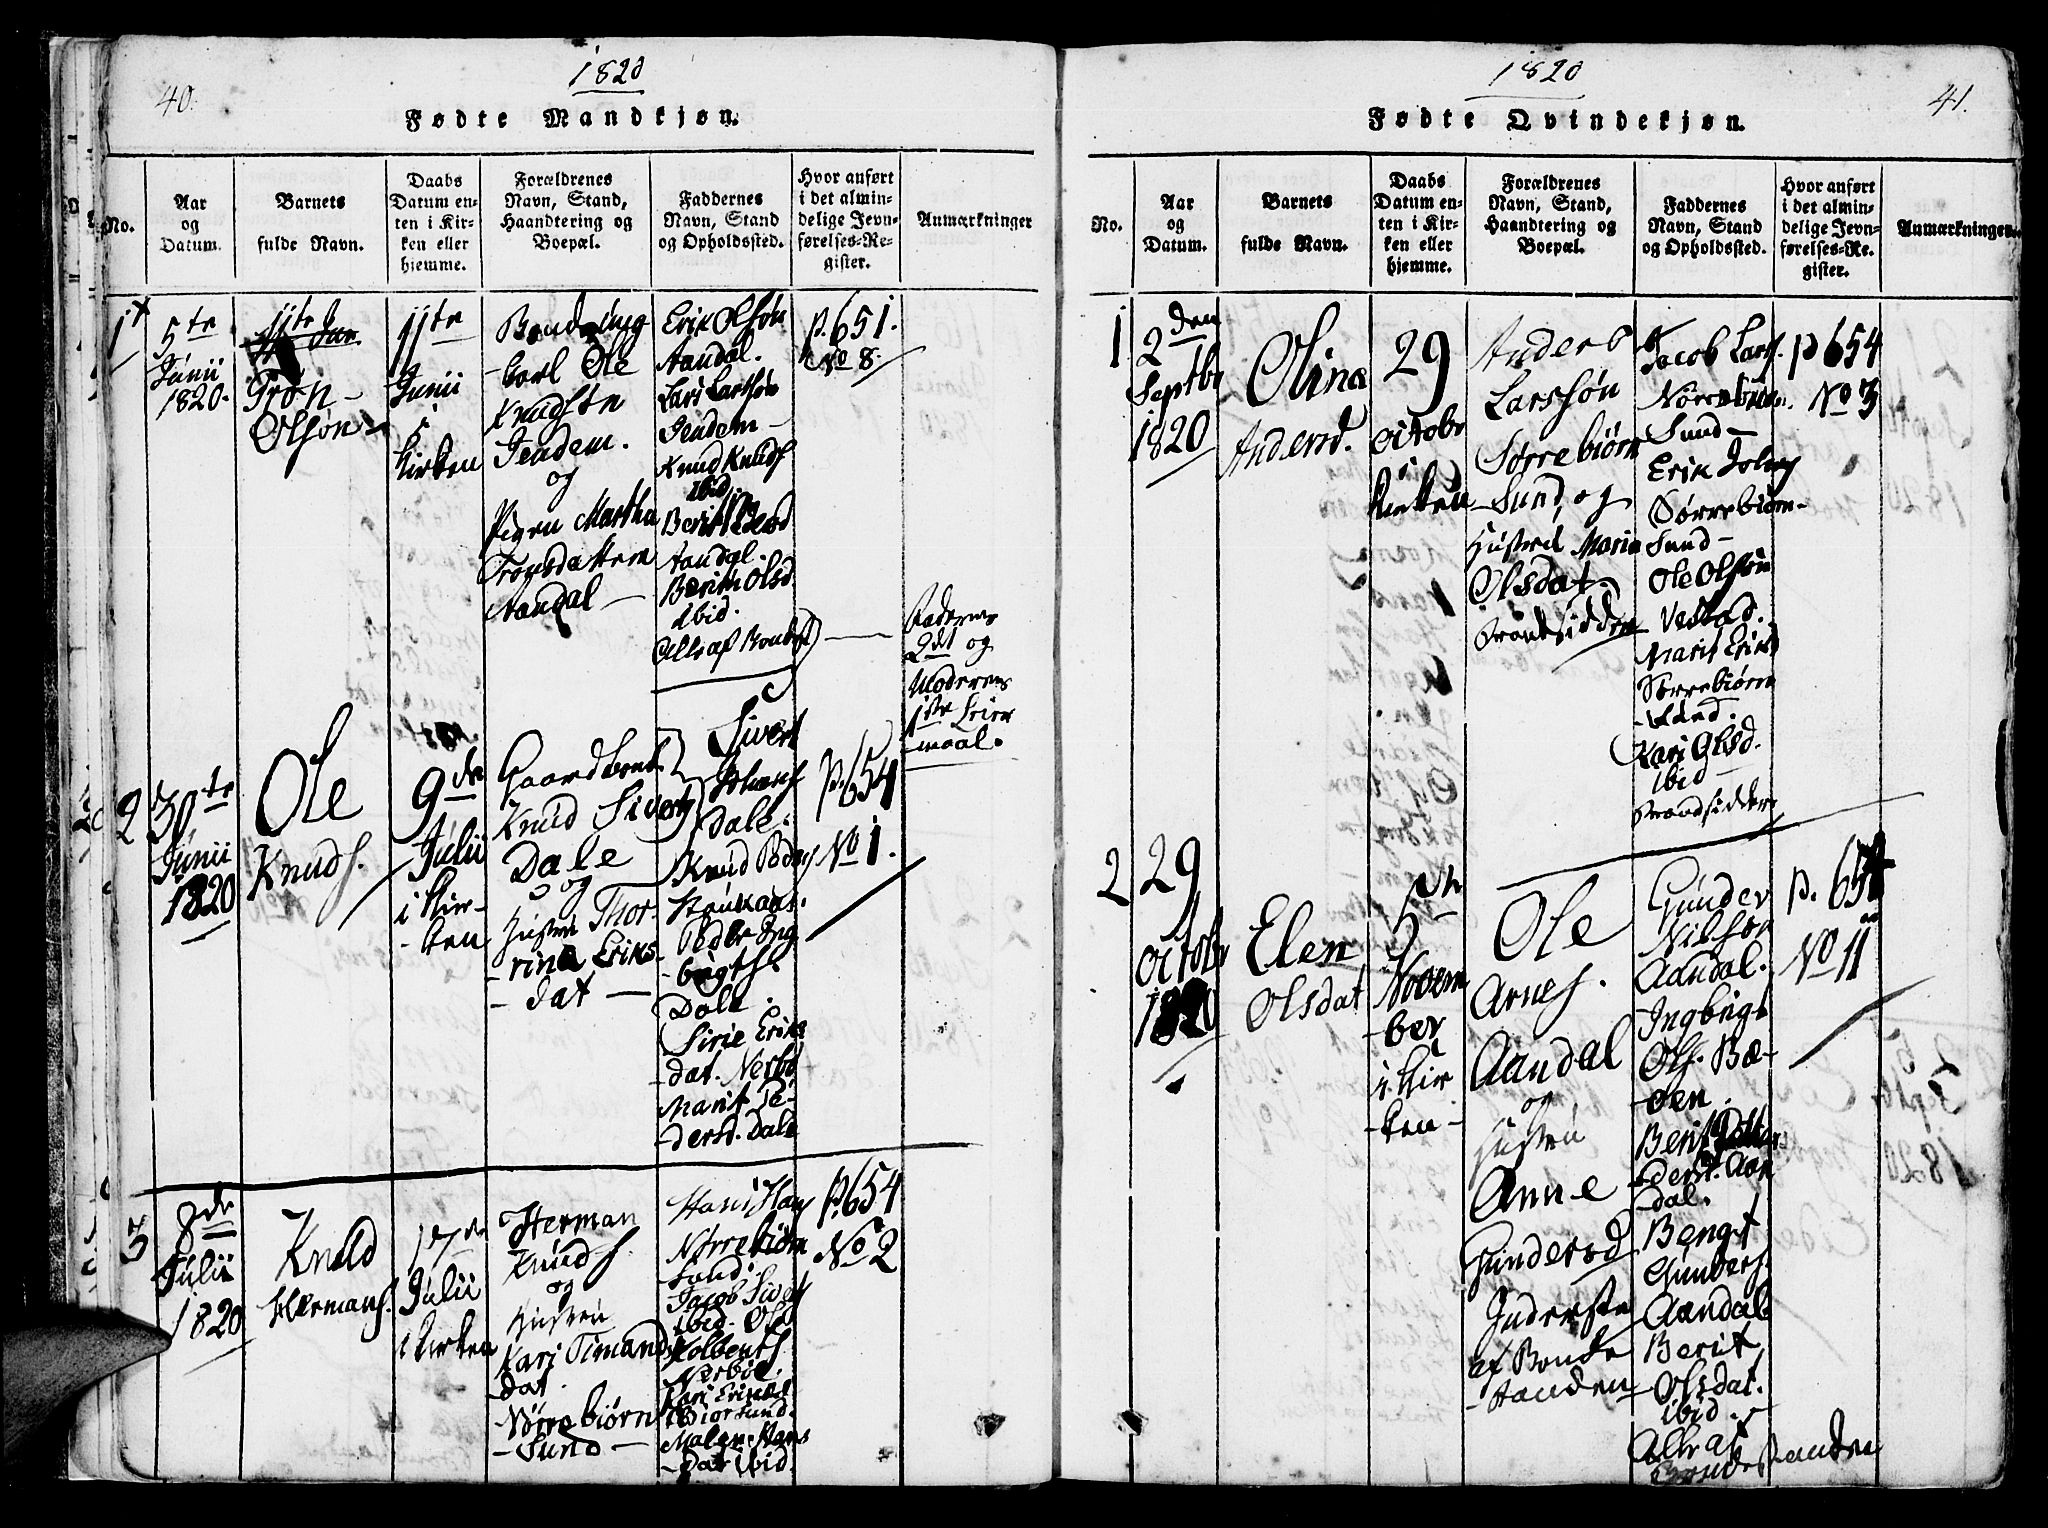 1820
40.
Fødte Mandkjøn.
No.
Aar
og
Datum.
Barnets
fulde Navn.
Daabs
Datum en-
ten i Kir-
ken eller
hjemme.
Forældrenes
Navn, Stand,
Haandtering og
Boepæl.
Faddernes
Navn, Stand
og Opholdssted.
Hvor anført
i det almin-
delige Jevn-
førelses-Re-
gister.
Anmærkninger
1
5te
Junii
1820.
Tron
Olsøn
11te
Junii
i
Kirken
Ole
Knudsøn
Jendem.
og
Pigen Martha
Tronsdatter
Aandal
Erik Olsøn
Aandal.
Lars Larssøn
Jendem
Knud Knuds
ibid
Berit
Aandal.
Berith Olsd
Ibid.
Alle af Bondest
p. 651.
No 8.
Faderens
2det og
Moderens
1ste Leier
-maal.
2
30te
Junii
1820
Ole
Knuds.
9de
Julii
i Kir-
-ken
Gaardbond
Knud Siverts
Dale
og
Hustru Thor-
-rina Eriks
-dat
Sivert
Johans
Dale.
Knud Peders
Peder Ing
-brigts
Dale.
Sirie Eriks
-dat. Nerbø
Marit Pe-
-dersd. Dale
p. 654
No 1.
3
8de
Julii
1820
Knud
Hermans.
17de
Julii
i Kirken
Herman
Knuds.
og
Hustru
Kari Timands
dat.
Nørrebiørn
-Sund
Hans Hans
Nørrebiørn
Sund.
Jacob Sivert
ibid. Ole
Kolbents
Nerbøe.
Kari Eriksd
Biørsund.
Malen Hans
-dat ibid.
p. 654
No 2
1820
41.
Fødte Qvindekjøn.
No.
Aar
og
Datum.
Barnets
fulde Navn.
Daabs
Datum en-
ten i Kir-
ken eller
hjemme.
Forældrenes
Navn, Stand,
Haandtering og
Boepæl.
Faddernes
Navn, Stand
og Opholdssted.
Hvor anført
i det almin-
delige Jevn-
førelses-Re-
gister.
Anmærkninger.
1
2den
Septbr
1820
Olina
Andersd.
29
Octobr
i
Kirken
Anders
Larssøn
Sørrebiørn
-Sund, og
Hustru Maria
Olsdat.
Strandsiddere
Jacob Lars.
Nørrebiørn.
Sund
Erik Johns
Sørrebiørn-
Sund
Ole Olsøn
Vestad.
Marit Eriksd
Sørrebiørn
-Sund.
Kari Olsd.
ibid
Strandsiddere
p 654
No 3
2
29
Octobr
1820
Elen
Olsdat
5te
Novem
-ber
i Kir
-ken
Ole
Arnes.
Aandal
og
Hustru
Anne
Gundersd
Inderste
af Bonde
Standen
Gunder
Nilsøn
Aandal.
Ingbrigt
Ols. Bæ-
-øen.
Berit
-dersd. Aan
-dal.
Bengt
Gunders.
Aandal
Berit
Olsdat.
ibid.
Alle af
Bondestanden
p. 654
No 11